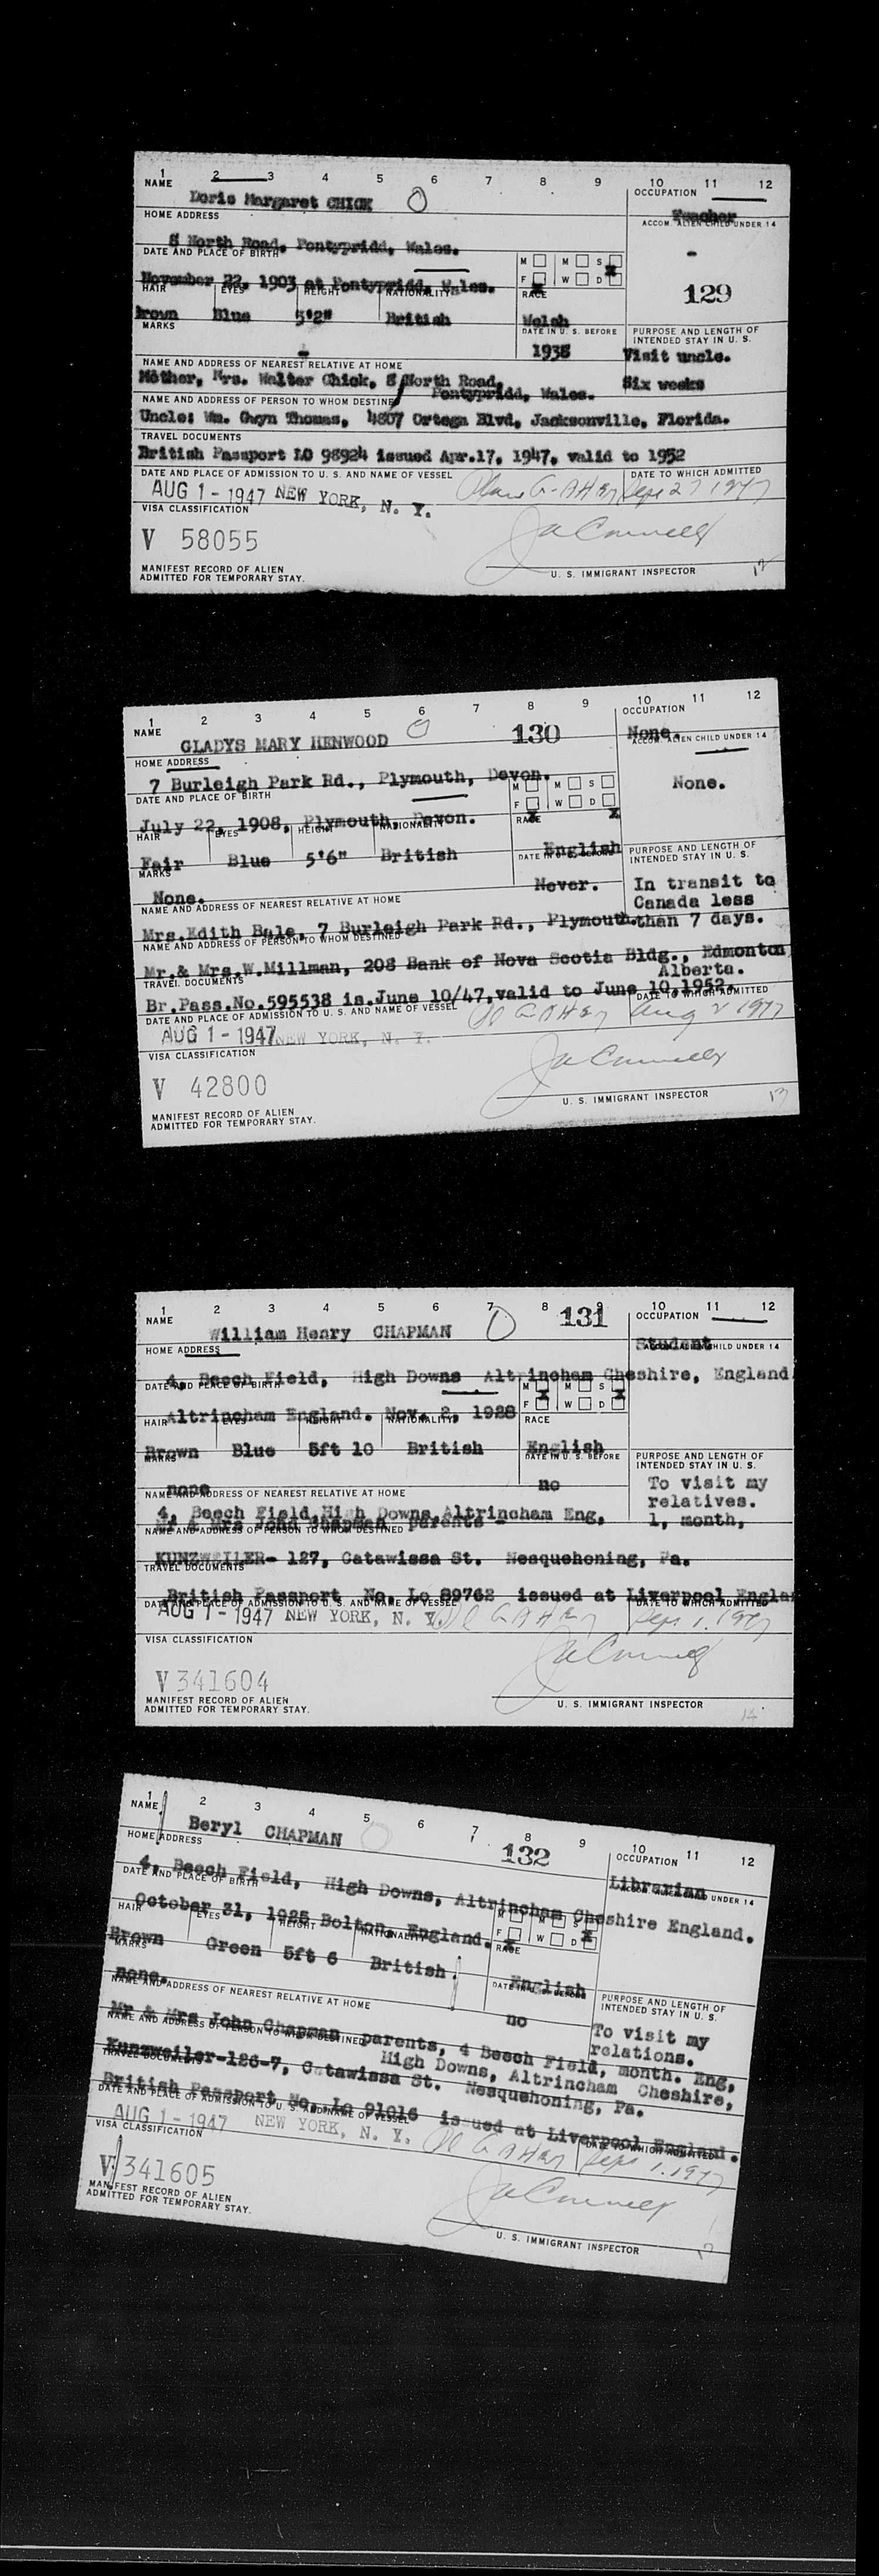 1 2 3 4 5 6 7 8 9 10 11 12
NAME OCCUPATION
Doris Margaret CHICK
HOME ADDRESS Teacher ACCOM. ALIEN CHILD UNDER 14
8 North Road, Pontypridd, Wales. -
DATE AND PLACE OF BIRTH M M S
November 22, 1903 at Pontypridd, Wales. F x W D x 129
HAIR EYES HEIGHT NATIONALITY RACE
brown Blue 5'2" British Welsh
MARKS DATE IN U. S. BEFORE PURPOSE AND LENGTH OF INTENDED STAY IN U. S.
- 1938 Visit uncle.
NAME AND ADDRESS OF NEAREST RELATIVE AT HOME
Mother, Mrs. Walter Chick, 8 North Road, Six weeks
Pontypridd, Wales.
NAME AND ADDRESS OF PERSON TO WHOM DESTINED
Uncle: Wm. Gwyn Thomas, 4807 Ortega Blvd, Jacksonville, Florida.
TRAVEL DOCUMENTS
British Passport LO 98924 issued Apr.17, 1947, valid to 1952
DATE AND PLACE OF ADMISSION TO U. S. AND NAME OF VESSEL DATE TO WHICH ADMITTED
AUG 1 - 1947 NEW YORK, N. Y. Sept 27 1947
VISA CLASSIFICATION
V 58055
MANIFEST RECORD OF ALIEN
ADMITTED FOR TEMPORARY STAY. U. S. IMMIGRANT INSPECTOR
1 2 3 4 5 6 7 8 9 10 11 12
NAME OCCUPATION
GLADYS MARY HENWOOD 130 None.
HOME ADDRESS ACCOM. ALIEN CHILD UNDER 14
7 Burleigh Park Rd., Plymouth, Devon. None.
DATE AND PLACE OF BIRTH M M S
July 22, 1908, Plymouth, Devon. F x W D x
HAIR EYES HEIGHT NATIONALITY RACE
Fair Blue 5'6" British English
MARKS DATE IN U. S. BEFORE PURPOSE AND LENGTH OF INTENDED STAY IN U. S.
None. Never. In transit to
NAME AND ADDRESS OF NEAREST RELATIVE AT HOME Canada less
Mrs.Edith Bale, 7 Burleigh Park Rd., Plymouth. than 7 days.
NAME AND ADDRESS OF PERSON TO WHOM DESTINED
Mr.& Mrs.W.Millman, 208 Bank of Nova Scotia Bldg., Edmonton
TRAVEL DOCUMENTS Alberta.
Br.Pass.No.595538 is.June 10/47,valid to June 10,1952.
DATE AND PLACE OF ADMISSION TO U. S. AND NAME OF VESSEL DATE TO WHICH ADMITTED
AUG 1 - 1947 NEW YORK, N. Y. Aug 1947
VISA CLASSIFICATION
V 42800
MANIFEST RECORD OF ALIEN
ADMITTED FOR TEMPORARY STAY. U. S. IMMIGRANT INSPECTOR
1 2 3 4 5 6 7 8 9 10 11 12
NAME 131 OCCUPATION
William Henry CHAPMAN Student
HOME ADDRESS ACCOM. ALIEN CHILD UNDER 14
4, Beech Field, High Downs Altrincham Cheshire, England
DATE AND PLACE OF BIRTH M x M S x
Altrincham England. Nov. 2, 1928 F W D
HAIR EYES HEIGHT NATIONALITY RACE
Brown Blue 5ft 10 British English
MARKS DATE IN U. S. BEFORE PURPOSE AND LENGTH OF INTENDED STAY IN U. S.
none no To visit my
NAME AND ADDRESS OF NEAREST RELATIVE AT HOME relatives.
4, Beech Field,High Downs,Altrincham Eng, 1, month,
Mr & Mrs John Chapman parents -
NAME AND ADDRESS OF PERSON TO WHOM DESTINED
KUNZWEILER- 127, Catawissa St. Nesquehoning, Pa.
TRAVEL DOCUMENTS
British Passport No. Lo 89762 issued at Liverpool Englan
DATE AND PLACE OF ADMISSION TO U. S. AND NAME OF VESSEL DATE TO WHICH ADMITTED
AUG 1 - 1947 NEW YORK, N. Y. Sept 1. 1947
VISA CLASSIFICATION
V 341604
MANIFEST RECORD OF ALIEN
ADMITTED FOR TEMPORARY STAY. U. S. IMMIGRANT INSPECTOR
1 2 3 4 5 6 7 8 9 10 11 12
NAME 132 OCCUPATION
Beryl CHAPMAN Librarian
HOME ADDRESS ACCOM. ALIEN CHILD UNDER 14
4, Beech Field, High Downs, Altrincham Cheshire England.
DATE AND PLACE OF BIRTH M M S x
October 31, 1925 Bolton, England. F x W D
HAIR EYES HEIGHT NATIONALITY RACE
Brown Green 5ft 6 British English
MARKS DATE IN U. S. BEFORE PURPOSE AND LENGTH OF INTENDED STAY IN U. S.
none. no To visit my
NAME AND ADDRESS OF NEAREST RELATIVE AT HOME relations.
Mr & Mrs John Chapman parents, 4 Beech Field, month. Eng,
High Downs, Altrincham Cheshire,
NAME AND ADDRESS OF PERSON TO WHOM DESTINED
Kunzweiler-126-7, Catawissa St. Nesquehoning, Pa.
TRAVEL DOCUMENTS
British Passport No. Lo 91016 issued at Liverpool England.
DATE AND PLACE OF ADMISSION TO U. S. AND NAME OF VESSEL DATE TO WHICH ADMITTED
AUG 1 - 1947 NEW YORK, N. Y. Sept 1. 1947
VISA CLASSIFICATION
V 341605
MANIFEST RECORD OF ALIEN
ADMITTED FOR TEMPORARY STAY. U. S. IMMIGRANT INSPECTOR